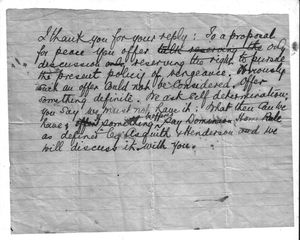 I thank you for your reply: To a proposal
for peace You offer talk reserving the only
discussion only reserving the right to pursue
the present policy of vengeance. Obviously
such an offer could not be considered. Offer
something definite. We ask self determination,
You say we must not have it. What then can we
have? offer something specific Say Dominion Home Rule
as defined by Asquith & Henderson and we
will discuss it with you.